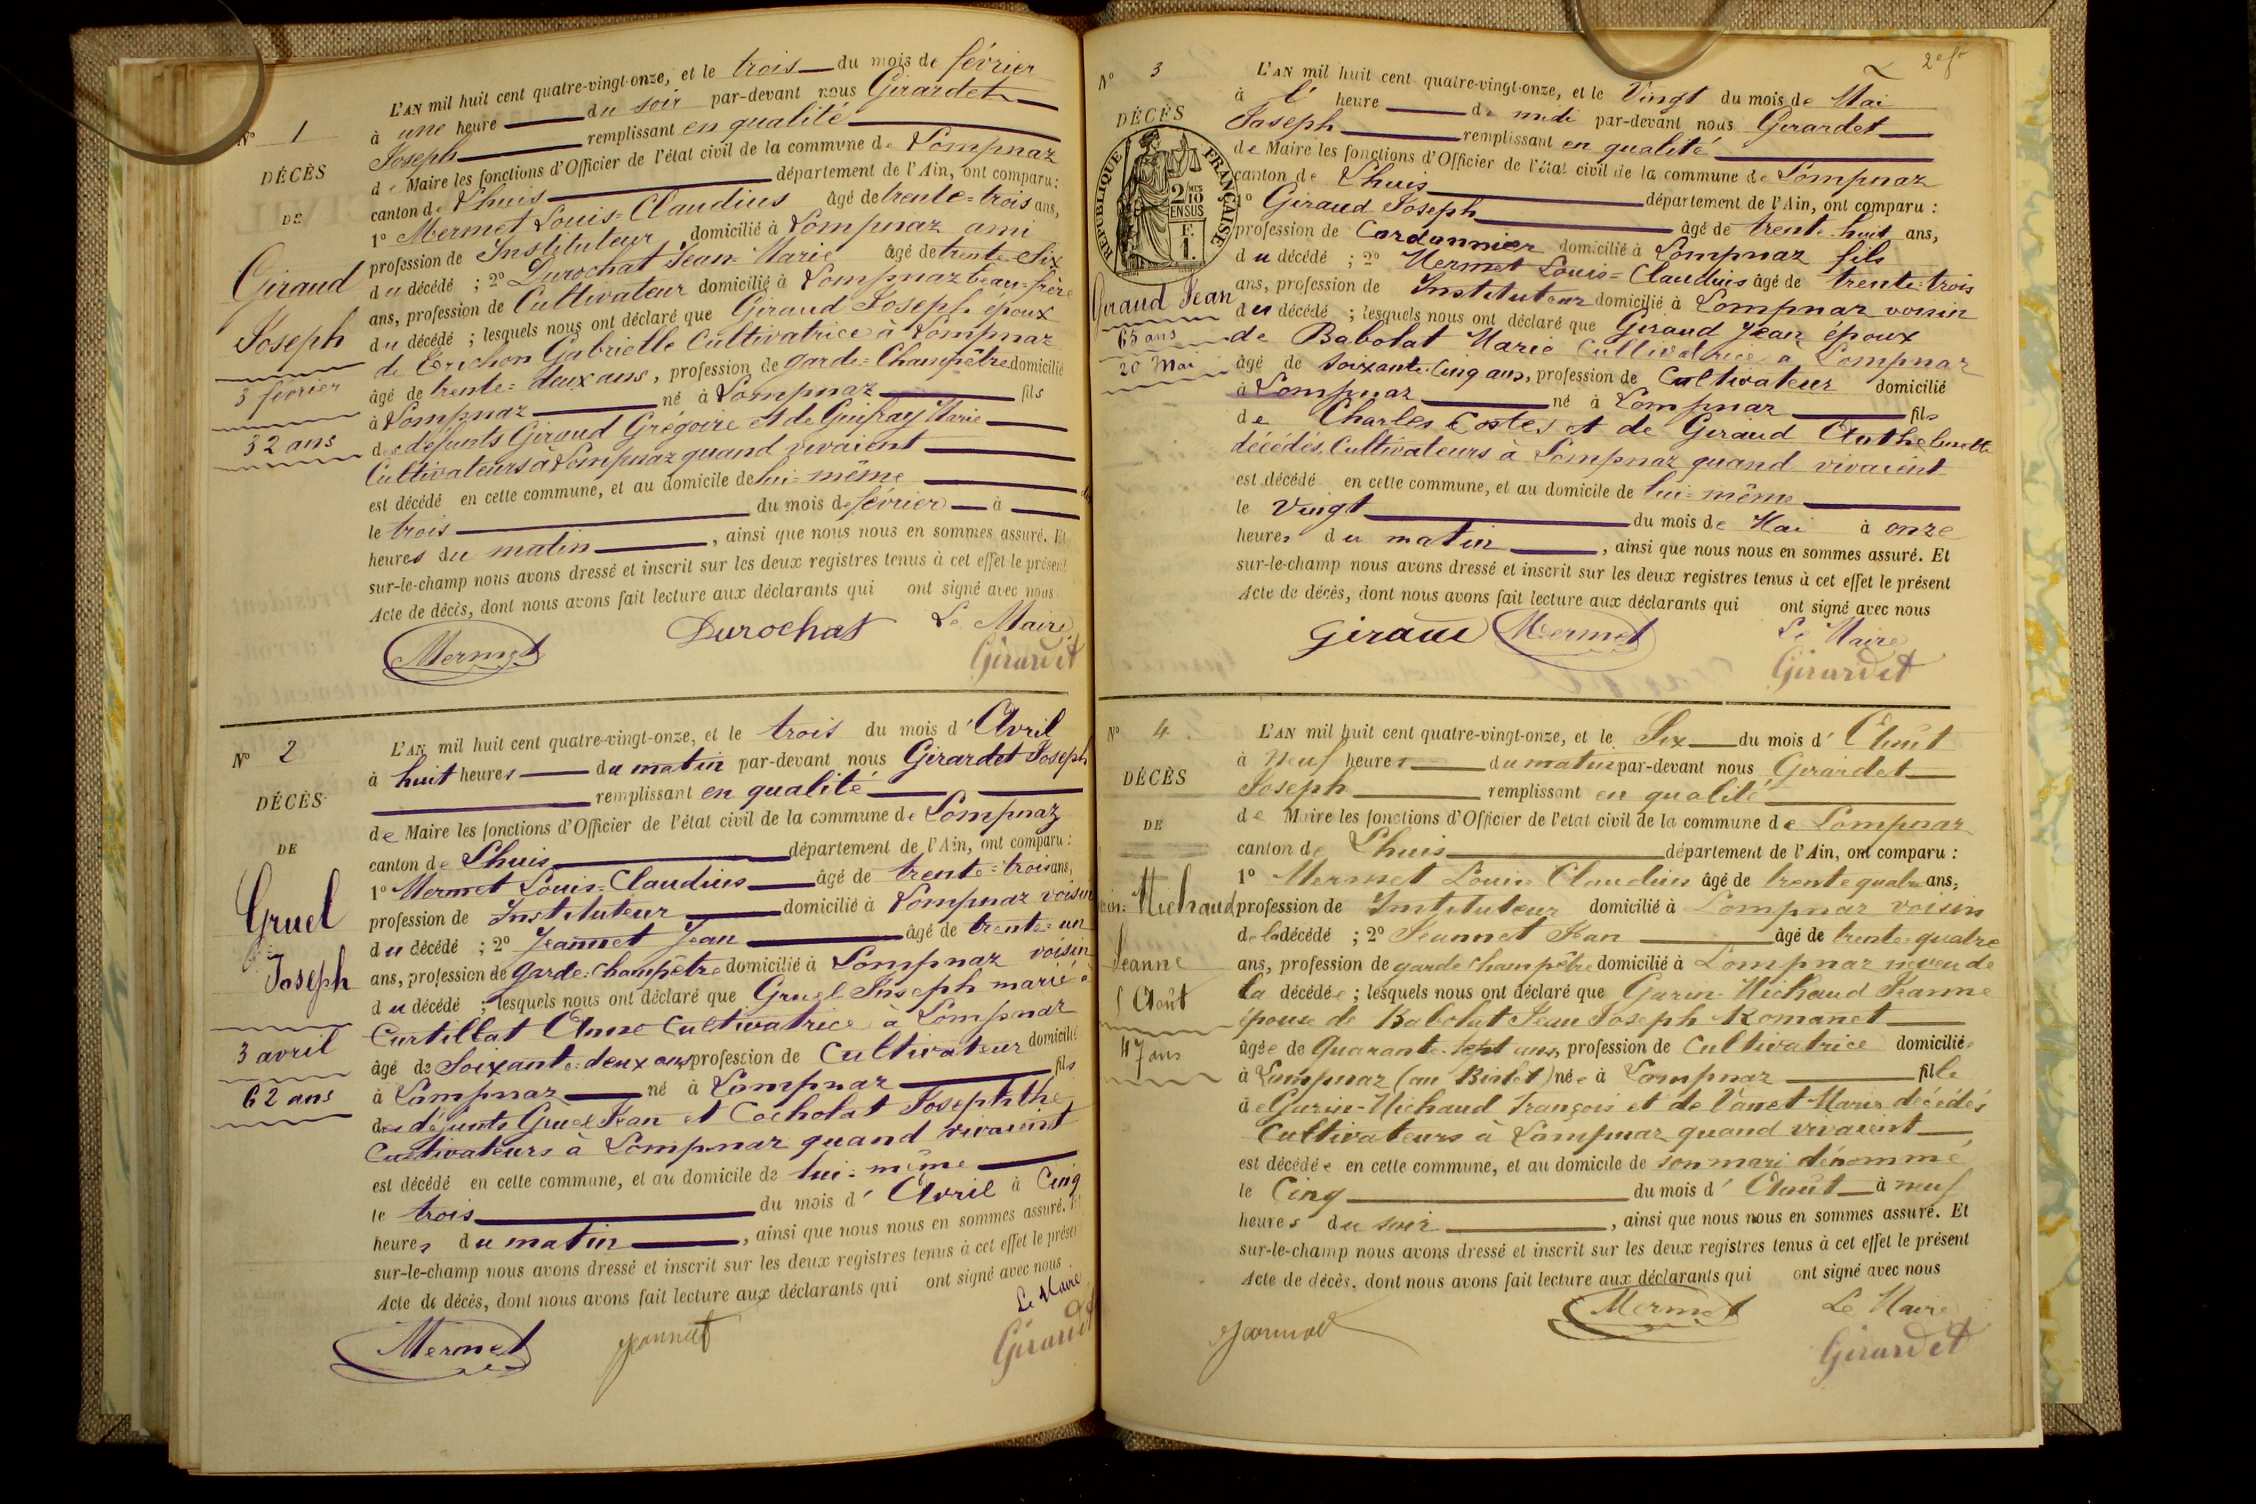 N° 1
DÉCÈS
DE
Giraud
Joseph
3 février
32 ans
L'AN mil huit cent quatre-vingt-onze, et le trois du mois de février
à une heure du soir par-devant nous Girardet
Joseph remplissant en qualité
de Maire les fonctions d'Officier de l'état civil de la commune de Lompnaz
canton de Lhuis département de l'Ain, ont comparu :
1° Mermet Louis=Claudius âgé de trente=trois ans,
profession de Instituteur domicilié à Lompnaz ami
du décédé ; 2° Durochat Jean=Marie âgé de trente=six
ans, profession de Cultivateur domicilié à Lompnaz beau=frère
du décédé ; lesquels nous ont déclaré que Giraud Joseph époux
de Gabrielle Cultivatrice à Lompnaz
âgé de trente=deux ans, profession de garde=Champêtre domicilié
à Lompnaz né à Lompnaz fils
des défunts Giraud Grégoire et de Guifray Marie
Cultivateurs à Lompnaz quand vivaient
est décédé en cette commune, et au domicile de lui=même
le trois du mois de février à
heures du matin, ainsi que nous nous en sommes assuré. Et
sur-le-champ nous avons dressé et inscrit sur les deux registres tenus à cet effet le présent
Acte de décès, dont nous avons fait lecture aux déclarants qui ont signé avec nous
Mermet Durochat Le Maire
Girardet
N° 2
DÉCÈS
DE
Gruel
Joseph
3 avril
62 ans
L'AN mil huit cent quatre-vingt-onze, et le trois du mois d'Avril
à huit heures du matin par-devant nous Girardet Joseph
remplissant en qualité
de Maire les fonctions d'Officier de l'état civil de la commune de Lompnaz
canton de Lhuis département de l'Ain, ont comparu :
1° Mermet Louis=Claudius âgé de trente=trois ans,
profession de Instituteur domicilié à Lompnaz voisin
du décédé ; 2° Jeannet Jean âgé de trente=un
ans, profession de garde=champêtre domicilié à Lompnaz voisin
du décédé ; lesquels nous ont déclaré que Gruel Joseph marié à
Curtillat Anne Cultivatrice à Lompnaz
âgé de Soixante=deux ans, profession de Cultivateur domicilié
à Lompnaz né à Lompnaz fils
des défunts Gruel Jean et Cocholat Josephthe
Cultivateurs à Lompnaz quand vivaient
est décédé en cette commune, et au domicile de lui=même
le trois du mois d'Avril à Cinq
heures du matin, ainsi que nous nous en sommes assuré. Et
sur-le-champ nous avons dressé et inscrit sur les deux registres tenus à cet effet le présent
Acte de décès, dont nous avons fait lecture aux déclarants qui ont signé avec nous
Le Maire
Mermet Jeannet Girardet
2e ft
N° 3
DÉCÈS
RÉPUBLIQUE FRANÇAISE
2 MES 10
EN SUS
F.
1.
Giraud Jean
65 ans
20 Mai
L'AN mil huit cent quatre-vingt-onze, et le Vingt du mois de Mai
à l' heure de midi par-devant nous Girardet
Joseph remplissant en qualité
de Maire les fonctions d'Officier de l'état civil de la commune de Lompnaz
canton de Lhuis département de l'Ain, ont comparu :
1° Giraud Joseph âgé de trente-huit ans,
profession de Cordonnier domicilié à Lompnaz fils
du décédé ; 2° Mermet Louis=Claudius âgé de trente=trois
ans, profession de Instituteur domicilié à Lompnaz voisin
du décédé ; lesquels nous ont déclaré que Giraud Jean époux
de Babolat Marie Cultivatrice à Lompnaz
âgé de soixante-Cinq ans, profession de Cultivateur domicilié
à Lompnaz né à Lompnaz fils
de Charles Costes et de Giraud Anthelmette
décédés, Cultivateurs à Lompnaz quand vivaient
est décédé en cette commune, et au domicile de lui=même
le Vingt du mois de Mai à onze
heures du matin, ainsi que nous nous en sommes assuré. Et
sur-le-champ nous avons dressé et inscrit sur les deux registres tenus à cet effet le présent
Acte de décès, dont nous avons fait lecture aux déclarants qui ont signé avec nous
Giraud Mermet Le Maire
Girardet
N° 4
DÉCÈS
DE
Michaud
Jeanne
5 Août
47 ans
L'AN mil huit cent quatre-vingt-onze, et le Six du mois d'Août
à Neuf heures du matin par-devant nous Girardet
Joseph remplissant en qualité
de Maire les fonctions d'Officier de l'état civil de la commune de Lompnaz
canton de Lhuis département de l'Ain, ont comparu :
1° Mermet Louis Claudius âgé de trente quatre ans,
profession de Instituteur domicilié à Lompnaz voisin
de la décédé ; 2° Jeannet Jean âgé de trente quatre
ans, profession de garde champêtre domicilié à Lompnaz neveu de
la décédée ; lesquels nous ont déclaré que Gurin-Michaud Jeanne
épouse de Babolat Jean Joseph Romanet
âgée de Quarante-Sept ans, profession de Cultivatrice domiciliée
à Lompnaz née à Lompnaz fille
de Gurin-Michaud François et de Vanet Marie décédés
Cultivateurs à Lompnaz quand vivaient
est décédée en cette commune, et au domicile de son mari dénommé
le Cinq du mois d'Août à neuf
heures du soir, ainsi que nous nous en sommes assuré. Et
sur-le-champ nous avons dressé et inscrit sur les deux registres tenus à cet effet le présent
Acte de décès, dont nous avons fait lecture aux déclarants qui ont signé avec nous
Jeannet Mermet Le Maire
Girardet